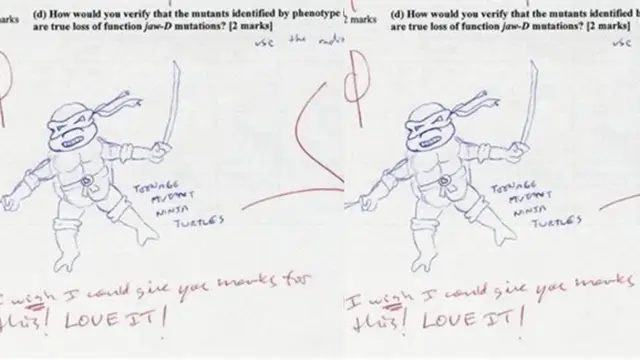 arks (d) How would you verify that the mutants identified by phenotype
are true loss of function jaw-D mutations? [2 marks]
use the
TEENAGE
MUTANT
NINJA
TURTLES
I wish I could give you marks for
this! LOVE IT!
2 marks (d) How would you verify that the mutants identified b
are true loss of function jaw-D mutations? [2 marks]
use
TEENAGE
MUTANT
NINJA
TURTLES
I wish I could give you marks
this! LOVE IT!